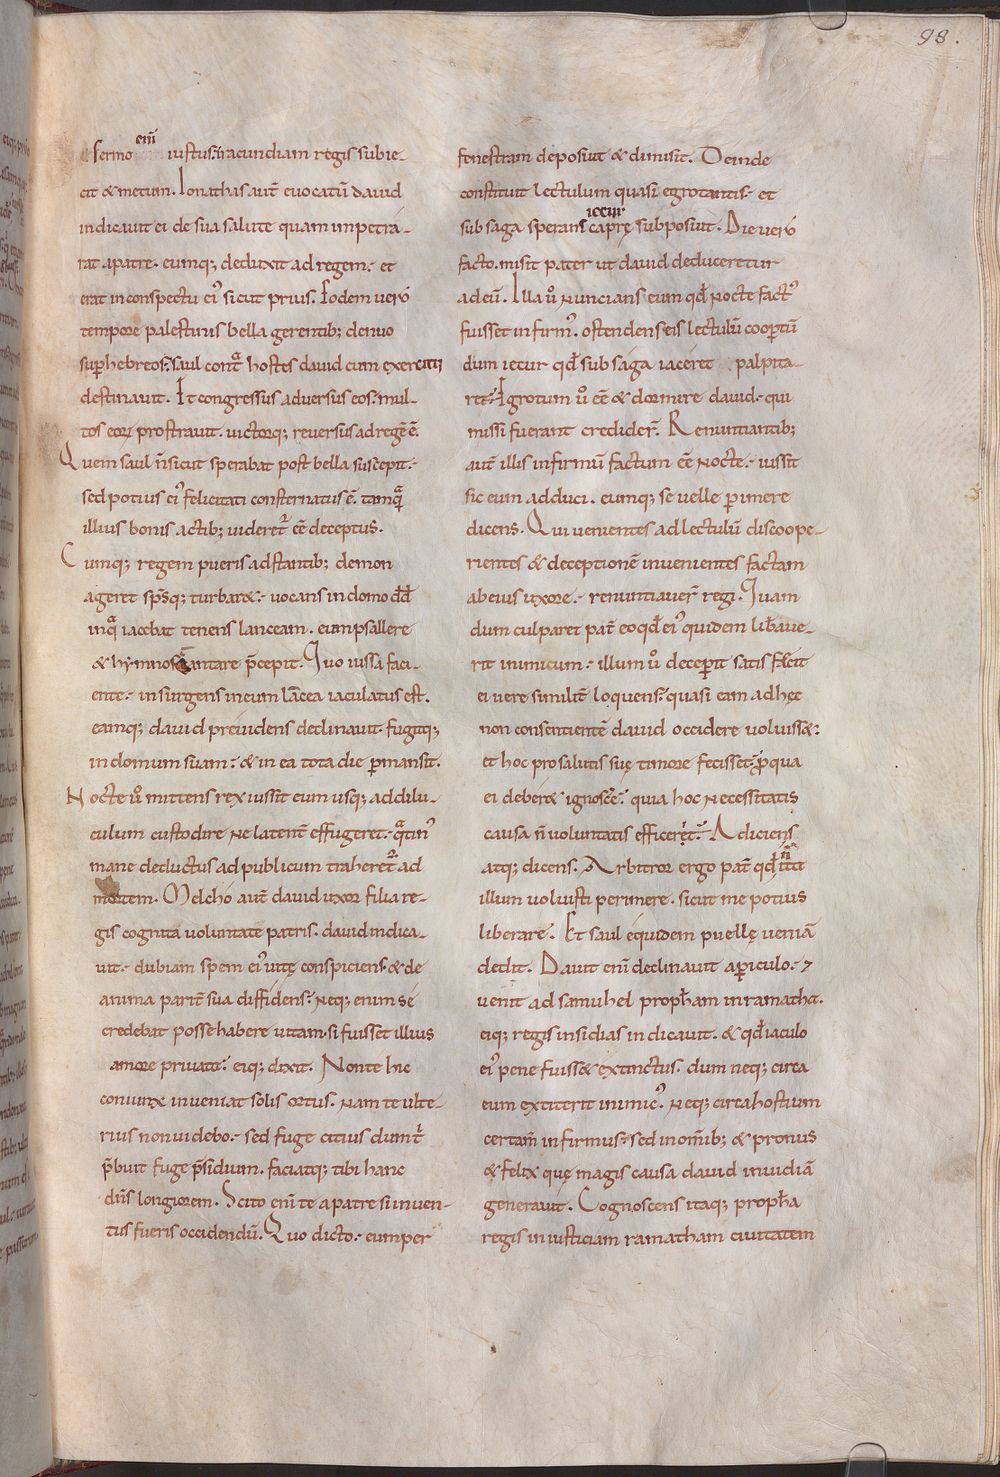 98.
sermo eni iustus. iracundiam regis subie-
cit & metum. Ionathas aut̄ euocatū dauid
indicauit ei de sua salute quam impetra-
rat apatre. eumq; deduxit ad regem. et
erat inconspectu ei' sicut prius. Eodem uero
tempore palestinis bella gerentib; denuo
sup hebreos. saul contͣ hostes dauid cum exercitu
destinauit. Et congressus aduersus eos. mul-
tos eorū prostrauit. uictorq; reuersus ad regē ē.
Quem saul n̄ sicut sperabat post bella suscepit.
sed potius ei' felicitati consternatus ē. tamqͣ
illius bonis actib; uideret᷑ eē deceptus.
Cumq; regem pueris adstantib; demon
ageret sp̄sq; turbar&. uocans indomo dd̄
inqͣ iacebat tenens lanceam. eum psallere
& hymnos cantare p̄cepit. Quo iussa faci-
ente. insurgens ineum lācea iaculatus est.
eamq; dauid preuidens declinauit. fugitq;
indomum suam. & in ea tota die p̱mansit.
Nocte ū mittens rex iussit eum usq; addilu-
culum custodire ne latent̄ effugeret. qͣtin'
mane deductus ad publicum traheret᷑ ad
mortem. Melcho aut̄ dauid uxor filia re-
gis cognita uoluntate patris. dauid indica-
uit. dubiam spem ei' uitę conspiciens. & de
anima parit̄ sua diffidens. Neq; enim se
credebat posse habere uitam. si fuisset illius
amore priuata. eiq; dixit. Non te hic
coniunx inueniat solis ortus. nam te ulte-
rius non uidebo. sed fuge citius dum t̄
p̄buit fuge p̄sidium. faciatq; tibi hanc
dn̄s longiorem. Scito enī te a patre si inuen-
tus fueris occidendū. Quo dicto. eum per
fenestram deposuit & dimisit. Deinde
constituit lectulum quasi egrotantis. et
sub saga sperans iecur caprę subposuit. Die uero
facto. misit pater ut dauid deduceretur
ad eū. Illa ū nuncians eum qd̄ nocte fact'
fuisset infirm'. ostendens eis lectulū coopertū
dum iecur qd̄ sub saga iaceret palpita-
ret. Egrotum ū eē & dormire dauid. qui
missi fuerant crediderꝰ. Renuntiantib;
aut̄ illis infirmū factum eē nocte. iussit
sic eum adduci. eumq; se uelle p̱imere
dicens. Qui uenientes ad lectulū discoope-
rientes & deceptionē inuenientes factam
ab eius uxore. renuntiauer̄ regi. Quam
dum culparet pat̄ eo qd̄ ei' quidem lib̄aue-
rit inimicum. illum ū decep̱it satis fecit
ei uere similit̄ loquens. quasi eam adhęc
non consentientē dauid occidere uoluiss&.
et hoc pro salutis suę timore fecisset. p qua
ei deber& ignosci. quia hoc necessitatis
causa n̄ uoluntatis efficeret. Adiciens
atq; dicens. Arbitror ergo pat̄ qd̄ n̄ ita
illum uoluisti perimere. sicut me potius
liberare. Et saul equidem puellę ueniā
dedit. Dauit enī declinauit ap̱iculo. ⁊
uenit ad samuhel proph̄am in ramatha.
eiq; regis insidias indicauit. & qd̄ iaculo
ei' pene fuiss& extinctus. dum neq; circa
eum extiterit inimic'. Neq; circa hostium
certam̄ infirmus. sed inom̄ib; & pronus
& felix quę magis causa dauid inuidiā
generauit. Cognoscens itaq; proph̄a
regis iniusticiam ramatham ciuitatem